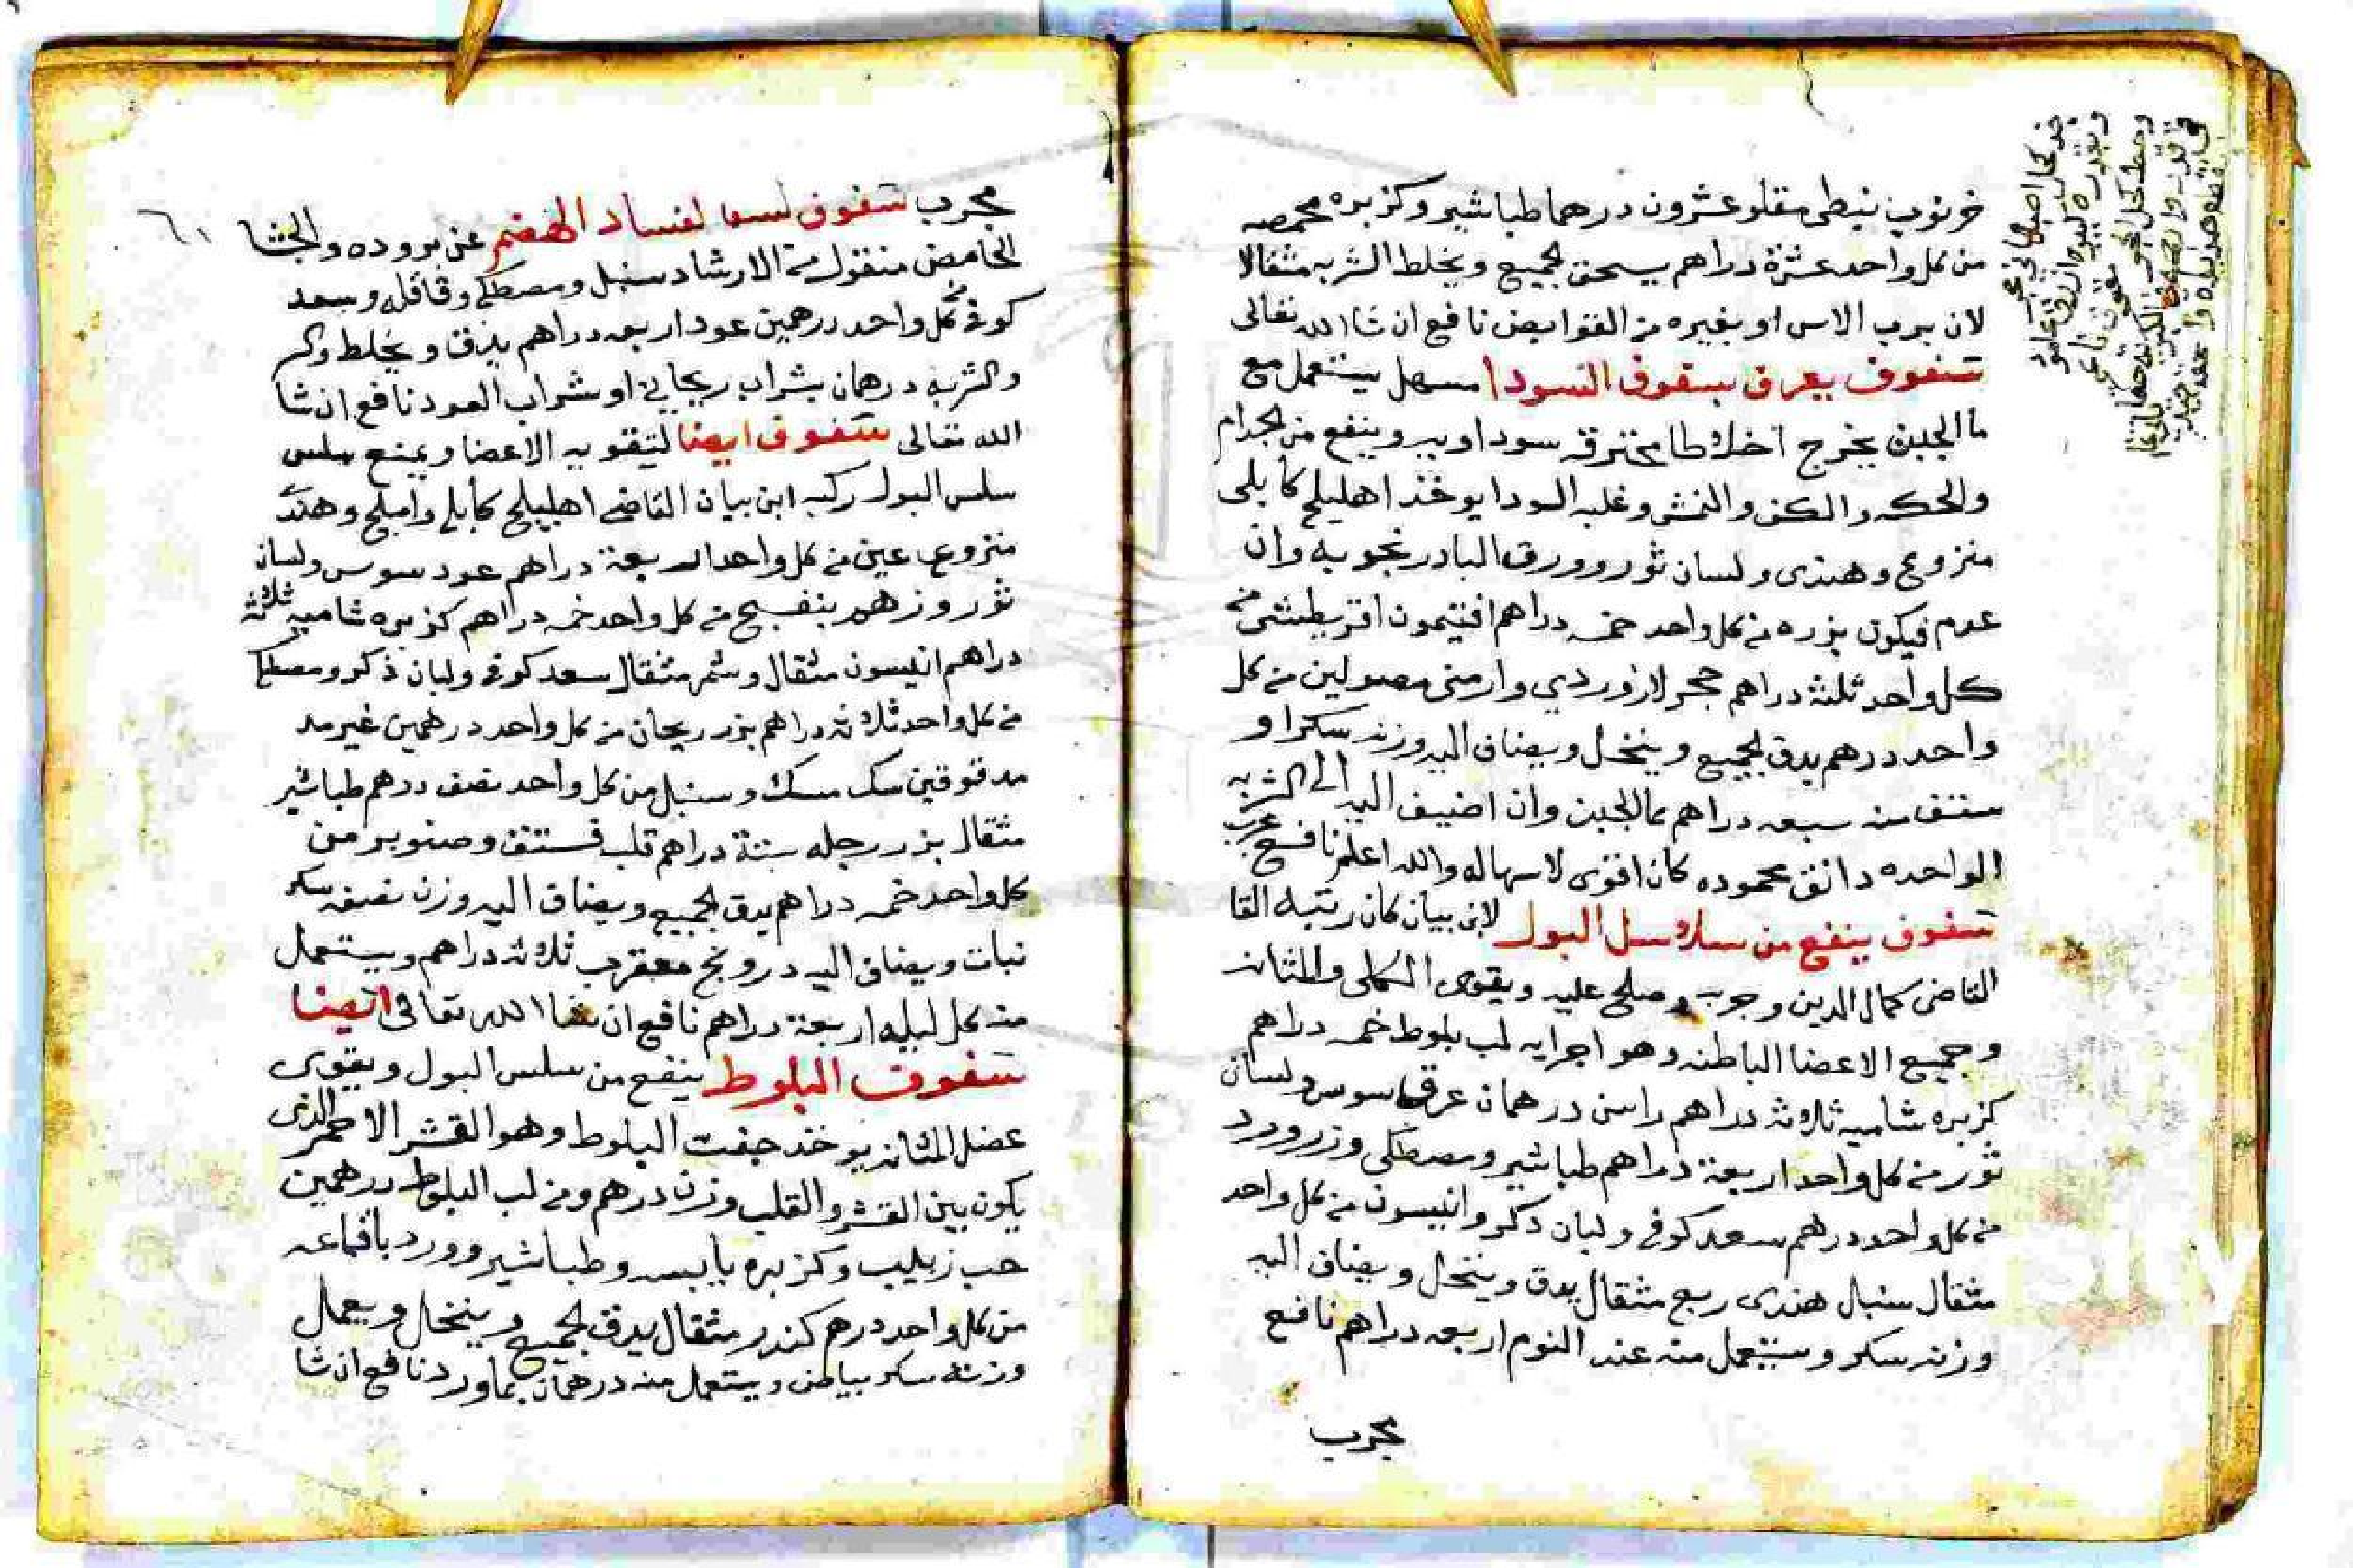 خرنوب نبطى مقلو عشرون درهما طباشير وكزبره محمصه
من كل واحد عشرة دراهم يسحق الجميع ويخلط الشربه مثقالا
لان برب الاس او بغيره من القوابض نافع ان شا الله تعالى
سفوف يعرف بسفوف السودا مسهل يستعمل مع
ما الجبن يخرج اخلاطا محترقه سوداويه وينفع من الجدام
والحكه و النمش وغلبه السودا يوخذ اهليلج كابلى
منزوع وهندى ولسان ثور وورق البادرنجويه وان
عدم فيكون بزره من كل واحد خمسه دراهم افتيمون اقريطشى من
كل واحد ثلثة دراهم حجر لازوردي وارمنى مصولين من كل
واحد درهم يدق الجميع وينخل ويضاف اليه وزنه سكرا و
ستف منه سبعه دراهم بما الجبن وان اضيف اليه الى الشربه
الواحده دانق محموده كان اقوى لاسهاله والله اعلم نافع مجرب
سفوف ينفع من سلاسل البول لابن بيان كان رتبه القا
القاضى كمال الدين وجربه وصلح عليه ويقوى الكلى والمثانه
وجميع الاعضا الباطنه وهو اجزايه لب بلوط خمسه دراهم
كزبره شاميه ثلاثه دراهم راسن درهمان عرق سوس ولسان
ثور من كل واحد اربعة دراهم طباشير ومصطكى وزر ورد
من كل واحد درهم سعد كوفى ولبان ذكر وانيسون من كل واحد
مثقال سنبل هندى ربع مثقال يدق وينخل ويضاف اليه
وزنه سكر وستعمل منه عند النوم اربعه دراهم نافع
مجرب
مجرب سفوف لفساد الهضم عن بروده والجشا
الحامض منقول من الارشاد سنبل ومصطكى وقاقله وسعد
كوفى من كل واحد درهمين عود اربعه دراهم يدق ويخلط
والشربه درهمان بشراب ريحانى او شراب العود نافع ان شا
الله تعالى سفوف ايضا لتقويه الاعضا ويمنع سلس
سلس البول ركبه ابن بيان القاضى اهليلج كابلى واملج وهند
منزوعين من كل واحد اربعة دراهم عود سوس ولسان
ثور وزهر بنفسج من كل واحد خمسه دراهم كزبره شاميه ثلاثة
دراهم انيسون مثقال وشمر مثقال سعد كوفى ولبان ذكر ومصطكى
من كل واحد ثلاثه دراهم بزر ريحان من كل واحد درهمين غير مد
مدقوقين سك مسك وسنبل من كل واحد نصف درهم طباشير
مثقال بزر رجله ستة دراهم قلب فستق وصنوبر من
كل واحد خمسه دراهم يدق الجميع ويضاف اليه وزن نصفه سكر
نبات ويضاف اليه درونج معقرب ثلاثه دراهم ويستعمل
منه كل ليله اربعة دراهم نافع ان شا الله تعالى ايضا
سفوف البلوط ينفع من سلس البول ويقوى
عضل المثانه يوخذ جفت البلوط وهو القشر الاحمر الذى
يكون بين القشر والقلب وزن درهم ومن لب البلوط درهمين
حب زبيب وكزبره يابسه وطباشير وورد باقماعه
من كل واحد درهم كندر مثقال يدق الجميع وينخل ويعمال
وزنه سكر بياض ويستعمل منه درهمان بماورد نافع ان شا